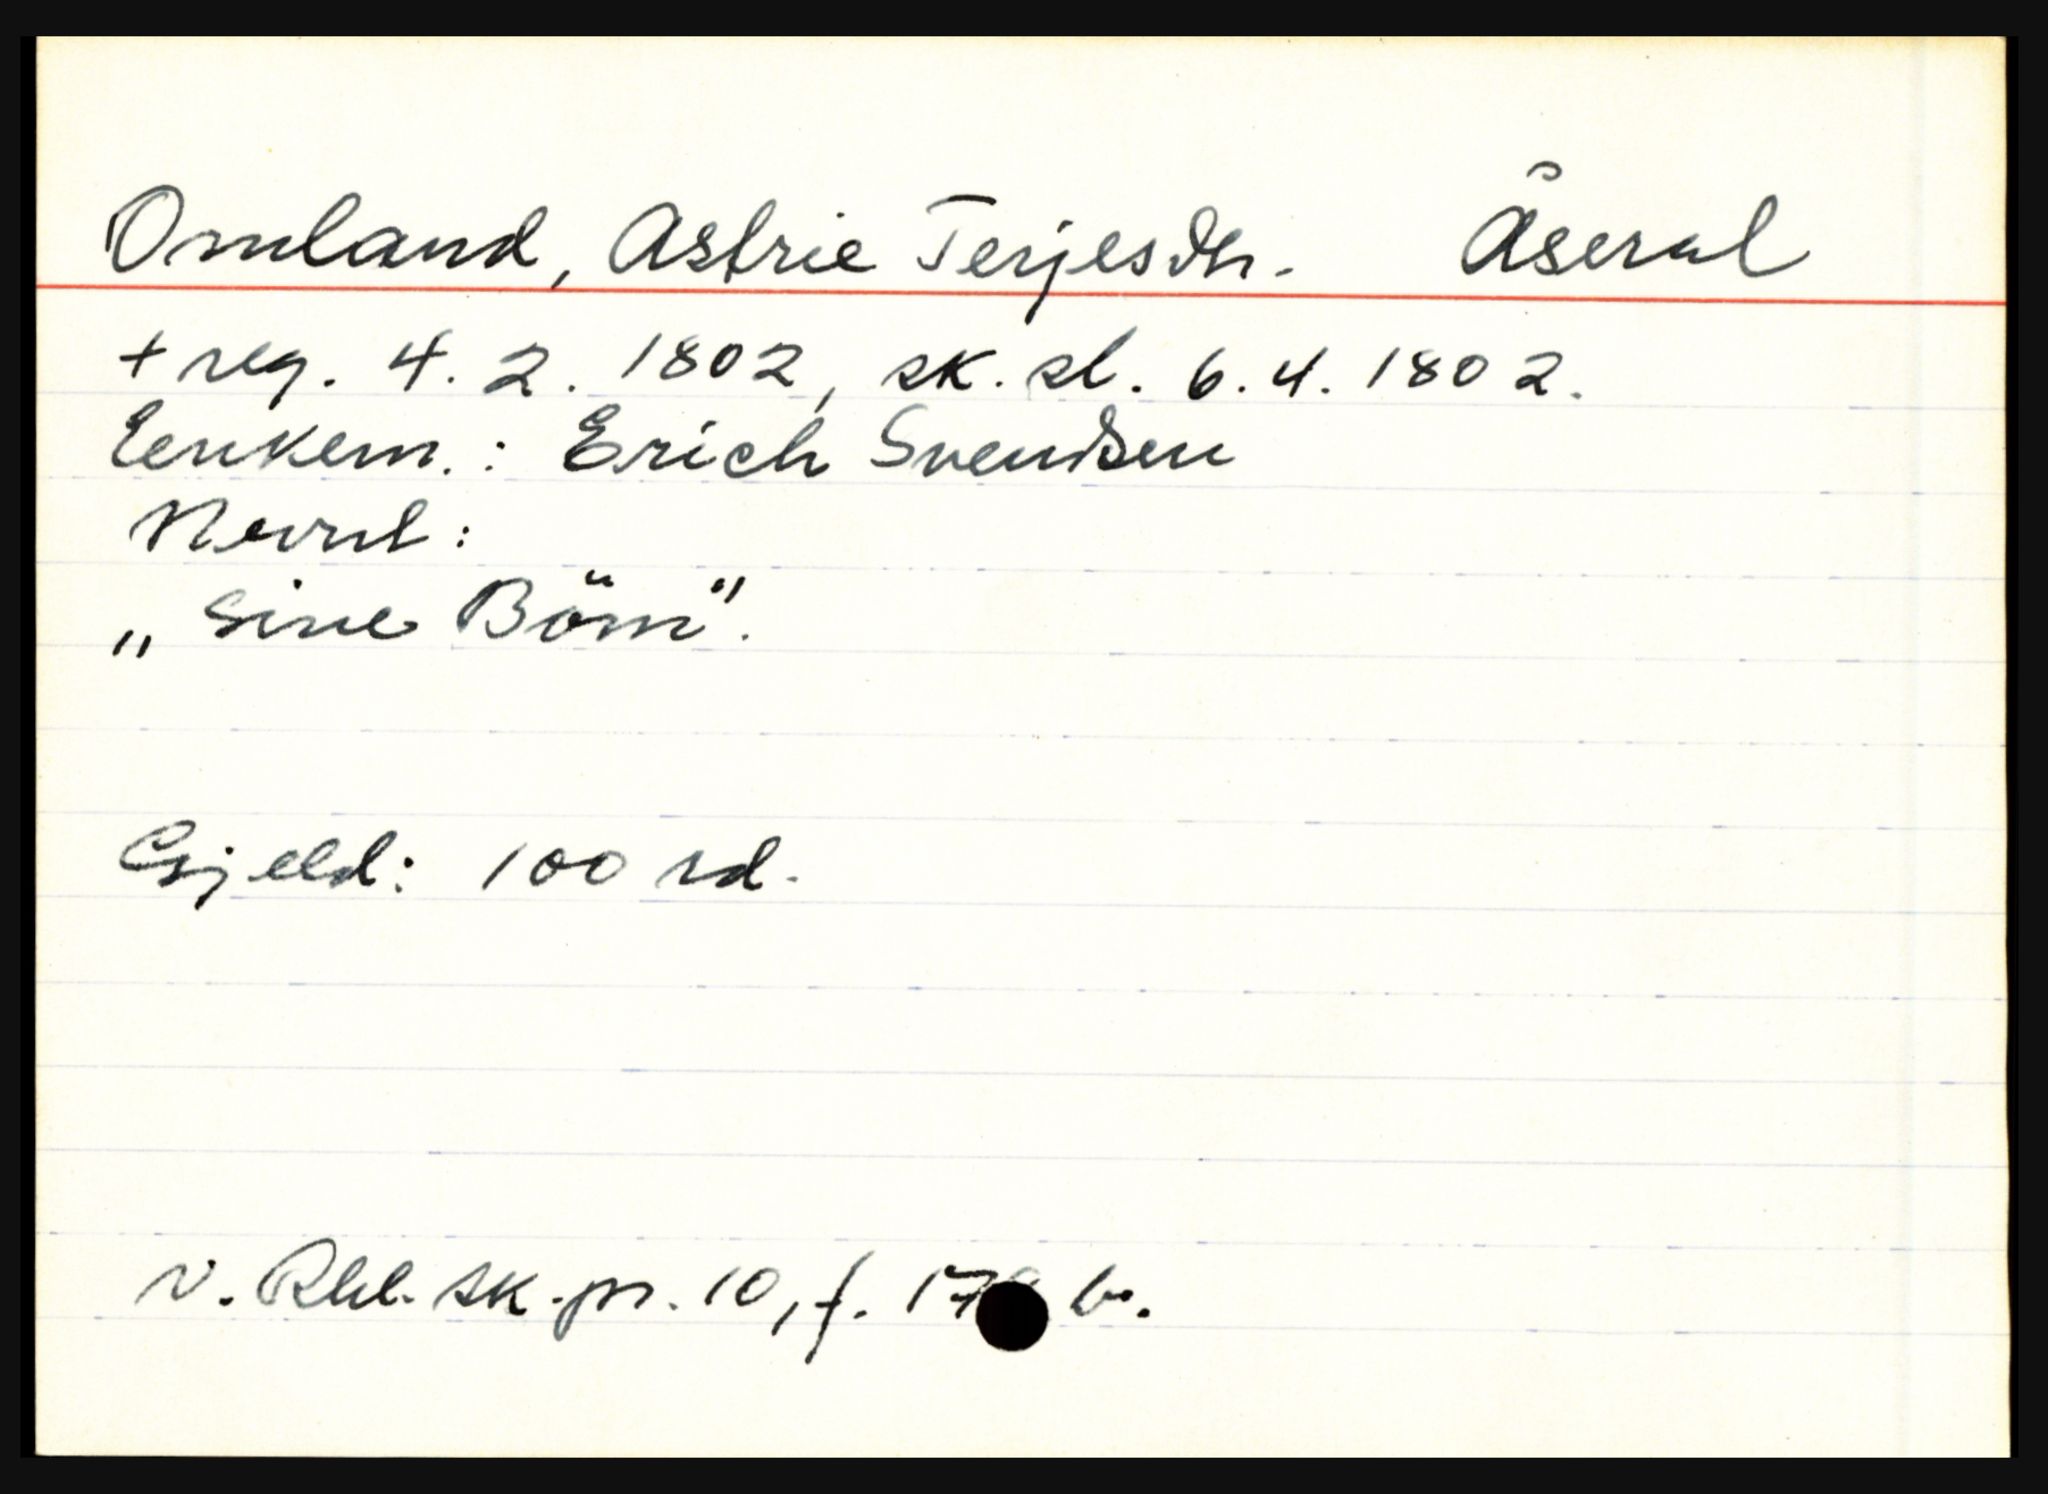 Omland, Astrie Terjesdtr. Åseral
+ reg. 4. 2. 1802, sk. sl. 6. 4. 1802.
Eenkem.: Erich Svendsen
Nevnt:
„ sine Börn".
Gjeld: 100 rd.
v. Rbl. sk. pr. 10, f. b.